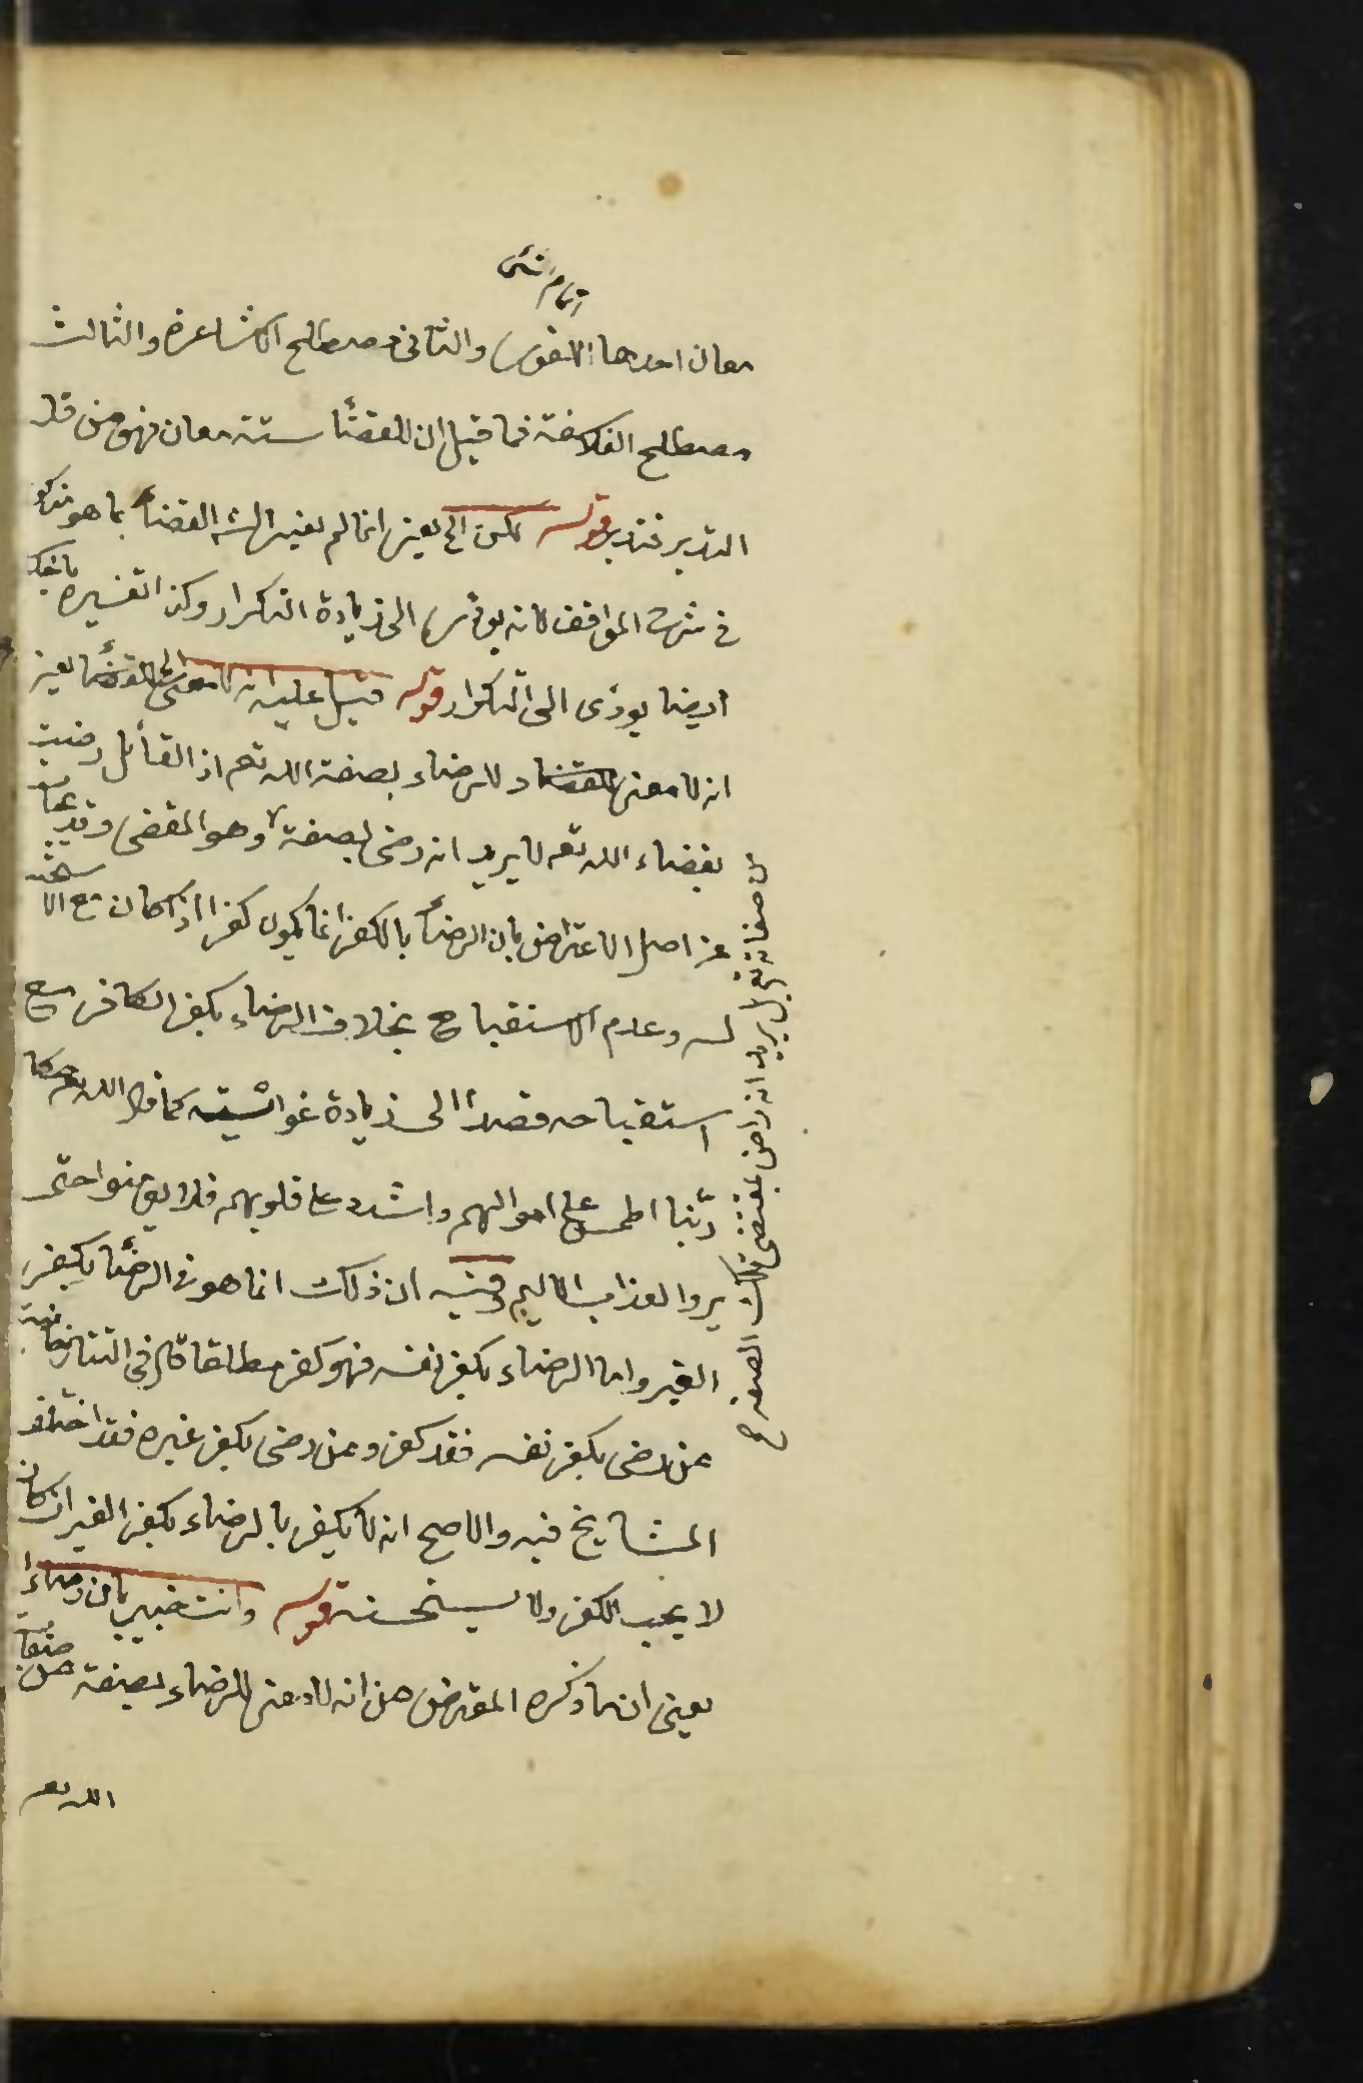 اتمام شئ
معان احدها اللغوى والثانى مصطلح الاشاعرة والثالث
مصطلح الفلاسفة فما قيل ان للقضأ ستة معان فهو من قلة
التدبر فتدبر قوله لكن الخ يعنى انما لم يفسر الشه القضأ بما هو مذكور
فى شرح المواقف لانه يؤدى الى زيادة التكرار وكذا تفسيره
ايضا يؤدى الى التكرار قوله قيل عليه انه لا معنى الخ يعنى
انه لا معنى للرضاء بصفة الله تعم اذ القائل رضيت
بقضاء الله تعم لا يريد انه رضى بصفة وهو المقضى وقد يجاب
عن اصل الاعتراض بان الرضأ بالكفر انما يكون كفرا اذا كان مع الاستحسان
له وعدم الاستقباح بخلاف الرضاء بكفر الكافر مع
استقباحه قصدا الى زيادة غوايته كما قال الله تعم حكاية
ربّنا اطمس على اموالهم واشدد على قلوبهم فلا يؤمنوا حتى
يروا العذاب الاليم وفيه ان ذلك انما هو فى الرضأ بكفر
الغير واما الرضاء بكفر نفسه فهو كفر مطلقا قال فى التتارخانية
من رضى بكفر نفسه فقد كفر ومن رضى بكفر غيره فقد اختلف
المشايخ فيه والاصح انه لا يكفر بالرضاء بكفر الغير ان كان
لا يحب الكفر ولا يستحسنه قوله وانت خبير بان رضاء
يعنى ان ما ذكره المعترض من انه لا معنى للرضاء بصفة من صفات
الله تعم
من صفاته تعم بل يريد انه راض بمقتضى تلك الصفة صح